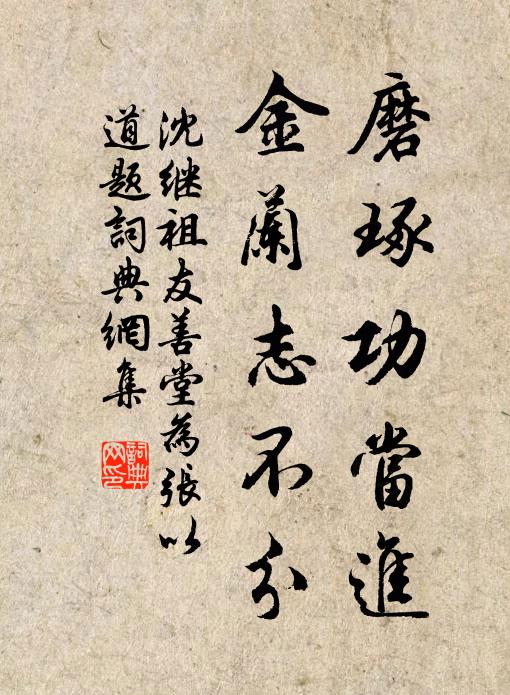 磨琢功當進
金蘭志不分
沈继祖友善堂為張以
道题詞典網集
詞典網印